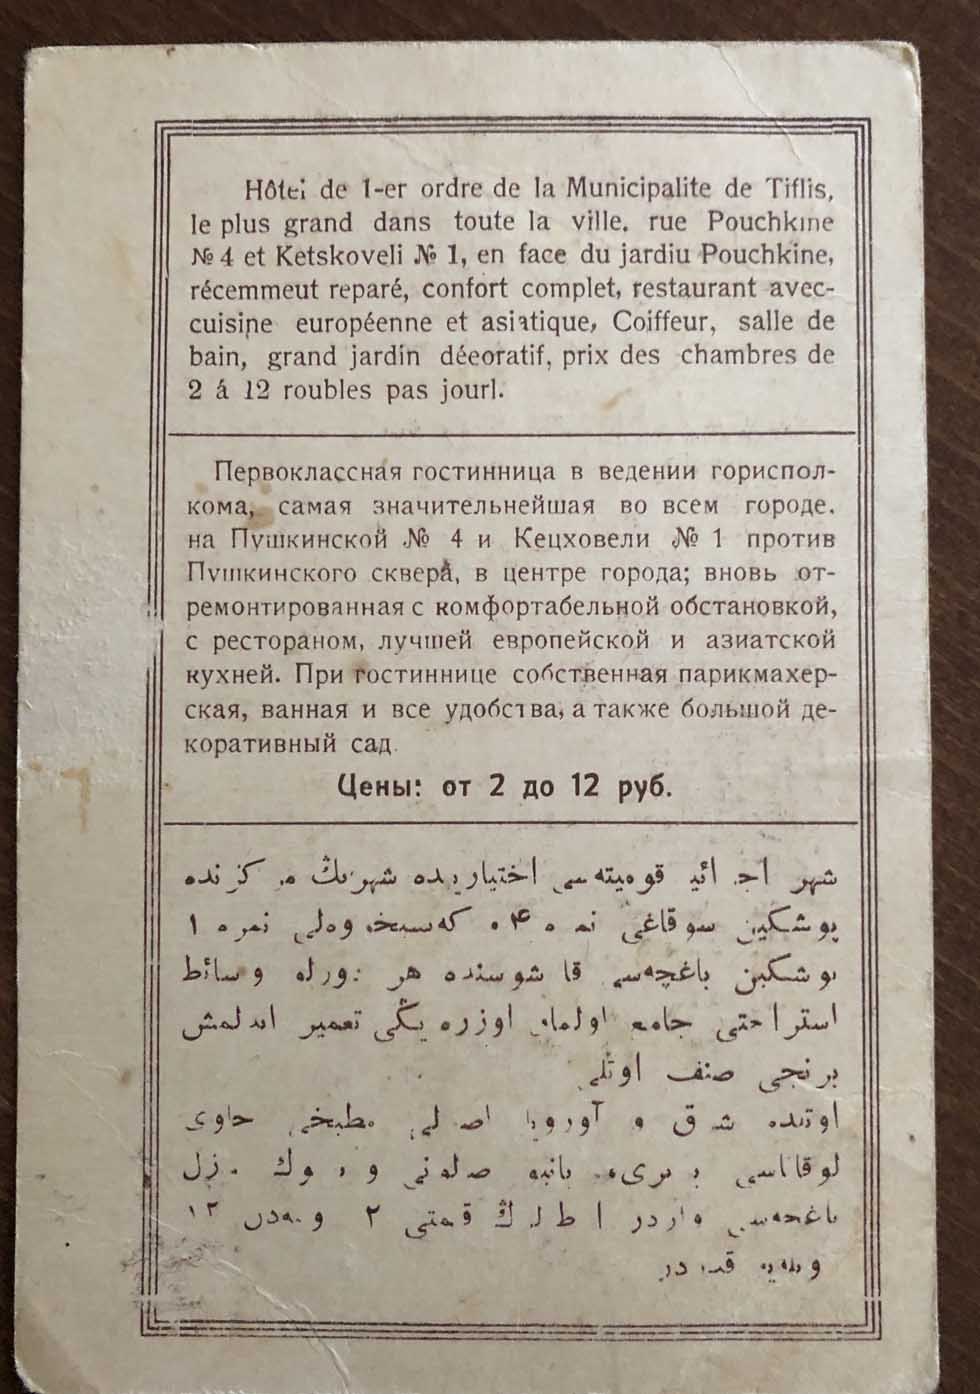 Hôtel de 1-er ordre de la Municipalite de Tiflis,
le plus grand dans toute la ville. rue Pouchkine
№ 4 et Ketskoveli № 1, en face du jardiu Pouchkine,
récemmeut reparé, confort complet, restaurant avec-
cuisine européenne et asiatique, Coiffeur, salle de
bain, grand jardin déeoratif, prix des chambres de
2 á 12 roubles pas jourl.
Первоклассная гостинница в ведении гориспол-
кома, самая значительнейшая во всем городе.
на Пушкинской № 4 и Кецховели № 1 против
Пушкинского сквера, в центре города; вновь от-
ремонтированная с комфортабельной обстановкой,
с рестораном, лучшей европейской и азиатской
кухней. При гостиннице собственная парикмахер-
ская, ванная и все удобства, а также большой де-
коративный сад.
Цены: от 2 до 12 руб.
شهر اجرائیه قومیته‌سی اختیاریده شهرىڭ مرکزنده
پوشکین سوقاغی نمره ۴۰ کەسخوولی نمره ۱
پوشکین باغچه‌سی قارشوسنده هر دورلو وسائط
استراحتی جامع اولماق اوزره یڭی تعمیر ایدلمش
برنجی صنف اوتلی
اوتلده شرق و آوروپا اصولی مطبخی حاوی
لوقانتاسی بربری بانیو صالونی و بویوك گوزل
باغچه‌سی واردر قیمتی ۲ ۱۲
قدر در